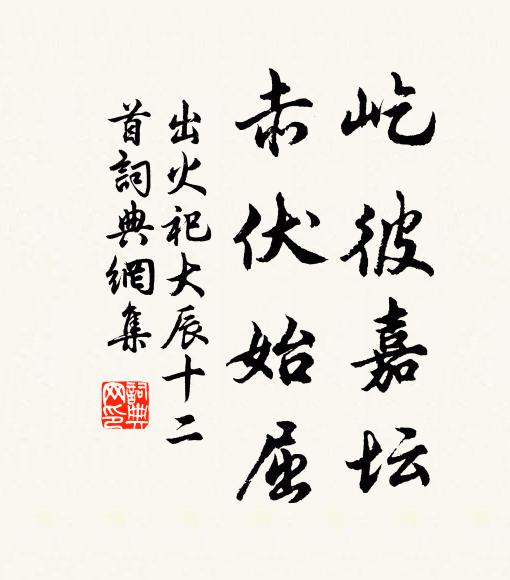 屹彼嘉坛
赤伏始屈
出火祀大辰十二
首詞典網集
詞典网印